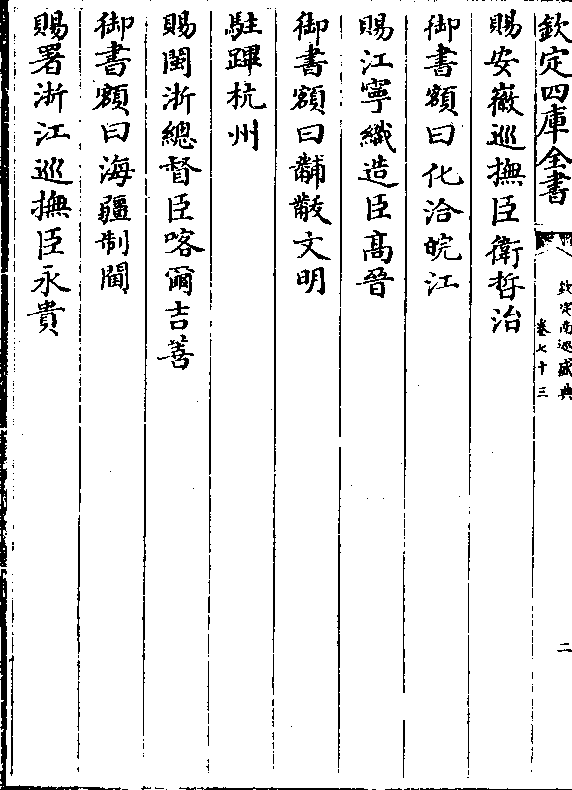 欽定四庫全書
欽定南巡盛典
卷七十三
二
賜安徽巡撫臣衛哲治
御書額曰化洽皖江
賜江寧織造臣高晉
御書額曰黼黻文明
駐蹕杭州
賜閩浙總督臣喀爾吉善
御書額曰海疆制閫
賜署浙江巡撫臣永貴